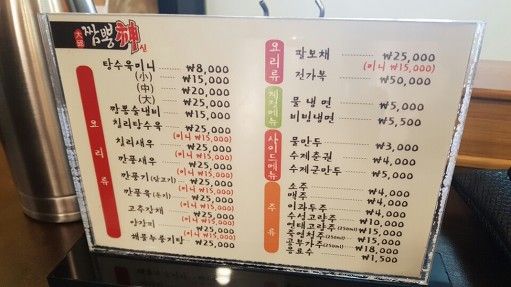 大 짬뽕神 신
요리류
탕수육미니 ₩8,000
(小) ₩15,000
(中) ₩20,000
(大) ₩25,000
짬뽕술냄비 ₩15,000
칠리탕수육 ₩25,000
(미니 ₩15,000)
칠리새우 ₩25,000
(미니 ₩15,000)
깐풍새우 ₩25,000
(미니 ₩15,000)
깐풍기(닭고기) ₩25,000
(미니 ₩15,000)
깐풍육(돈기) ₩25,000
(미니 ₩15,000)
고추잡채 ₩25,000
(미니 ₩15,000)
양장피 ₩25,000
해물누룽지탕 ₩25,000
요리류
팔보채 ₩25,000
(미니 ₩15,000)
전가복 ₩50,000
계절메뉴
물냉면 ₩5,000
비빔냉면 ₩5,500
사이드메뉴
물만두 ₩3,000
수제춘권 ₩4,000
수제군만두 ₩5,000
주류
소주 ₩4,000
맥주 ₩4,000
이과두주 ₩4,000
수성고량주 ₩10,000
연태고량주(250ml) ₩15,000
죽엽청주(250ml) ₩15,000
공부가주(250ml) ₩18,000
음료수 ₩1,500